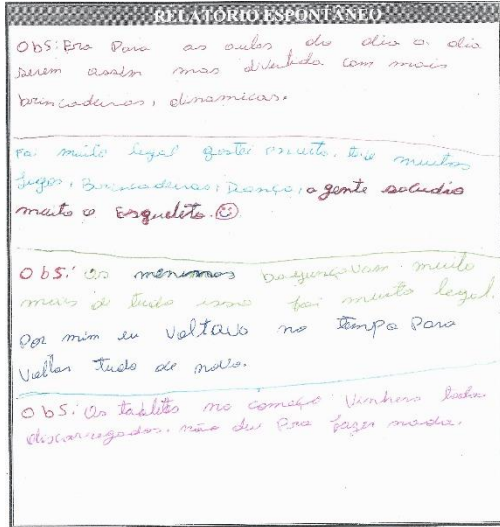 RELATÓRIO ESPONTÂNEO
Obs: Era Para as aulas do dia a dia
serem assim mas divertida com mais
brincadeiras, dinamicas.
Foi muito legal gostei muito. teve muitos
jogos, Brincadeiras, Dança, a gente sacudio
muito o Esqueleto. ☺
Obs: os meninos bagunçavam muito
mais de tudo isso foi muito legal.
Por mim eu Voltava no tempo Para
Voltar tudo de novo.
Obs: Os tablets no começo Vinhero todos
discarregados, não deu Pra fazer nada.